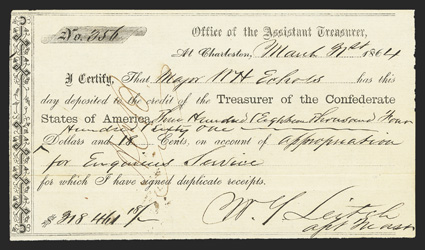 No. 356
Office of the Assistant Treasurer,
At Charleston, March 31st 1864
I Certify, That Major WH Echols has this
day deposited to the credit of the Treasurer of the Confederate
States of America, Two Hundred Eighteen Thousand Four
Hundred Sixty one
Dollars and 18 Cents, on account of appropriation
for Engineer Service
for which I have signed duplicate receipts.
$ 218 461 18/
W. Y. Leitch
asst Treasr